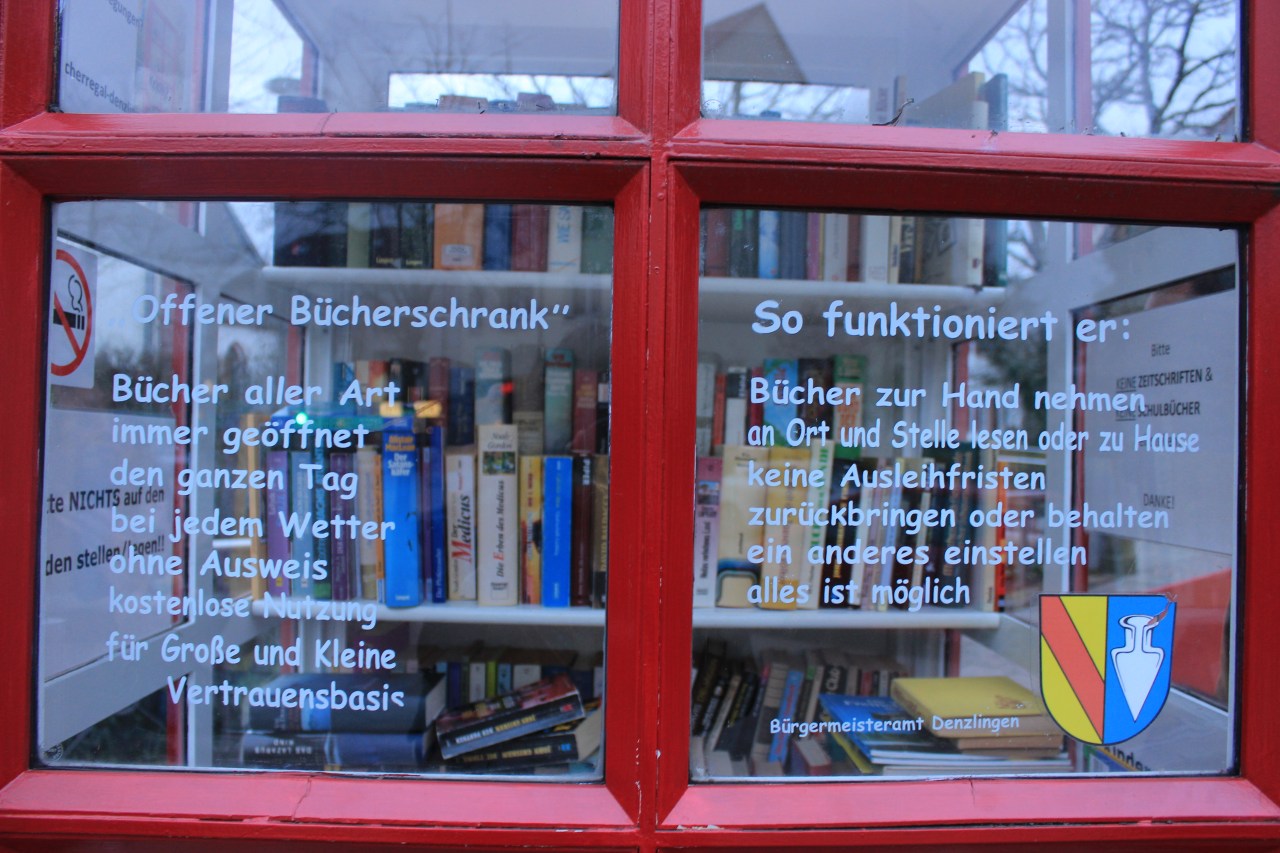 cherregal-denz
„Offener Bücherschrank”
Bücher aller Art
immer geöffnet
den ganzen Tag
bei jedem Wetter
ohne Ausweis
kostenlose Nutzung
für Große und Kleine
Vertrauensbasis
NICHTS auf den
den stellen/legen!!
So funktioniert er:
Bücher zur Hand nehmen
an Ort und Stelle lesen oder zu Hause
keine Ausleihfristen
zurückbringen oder behalten
ein anderes einstellen
alles ist möglich
Bürgermeisteramt Denzlingen
Bitte
KEINE ZEITSCHRIFTEN &
KEINE SCHULBÜCHER
DANKE!
Der Medicus
Noah Gordon
Die Erben des Medicus